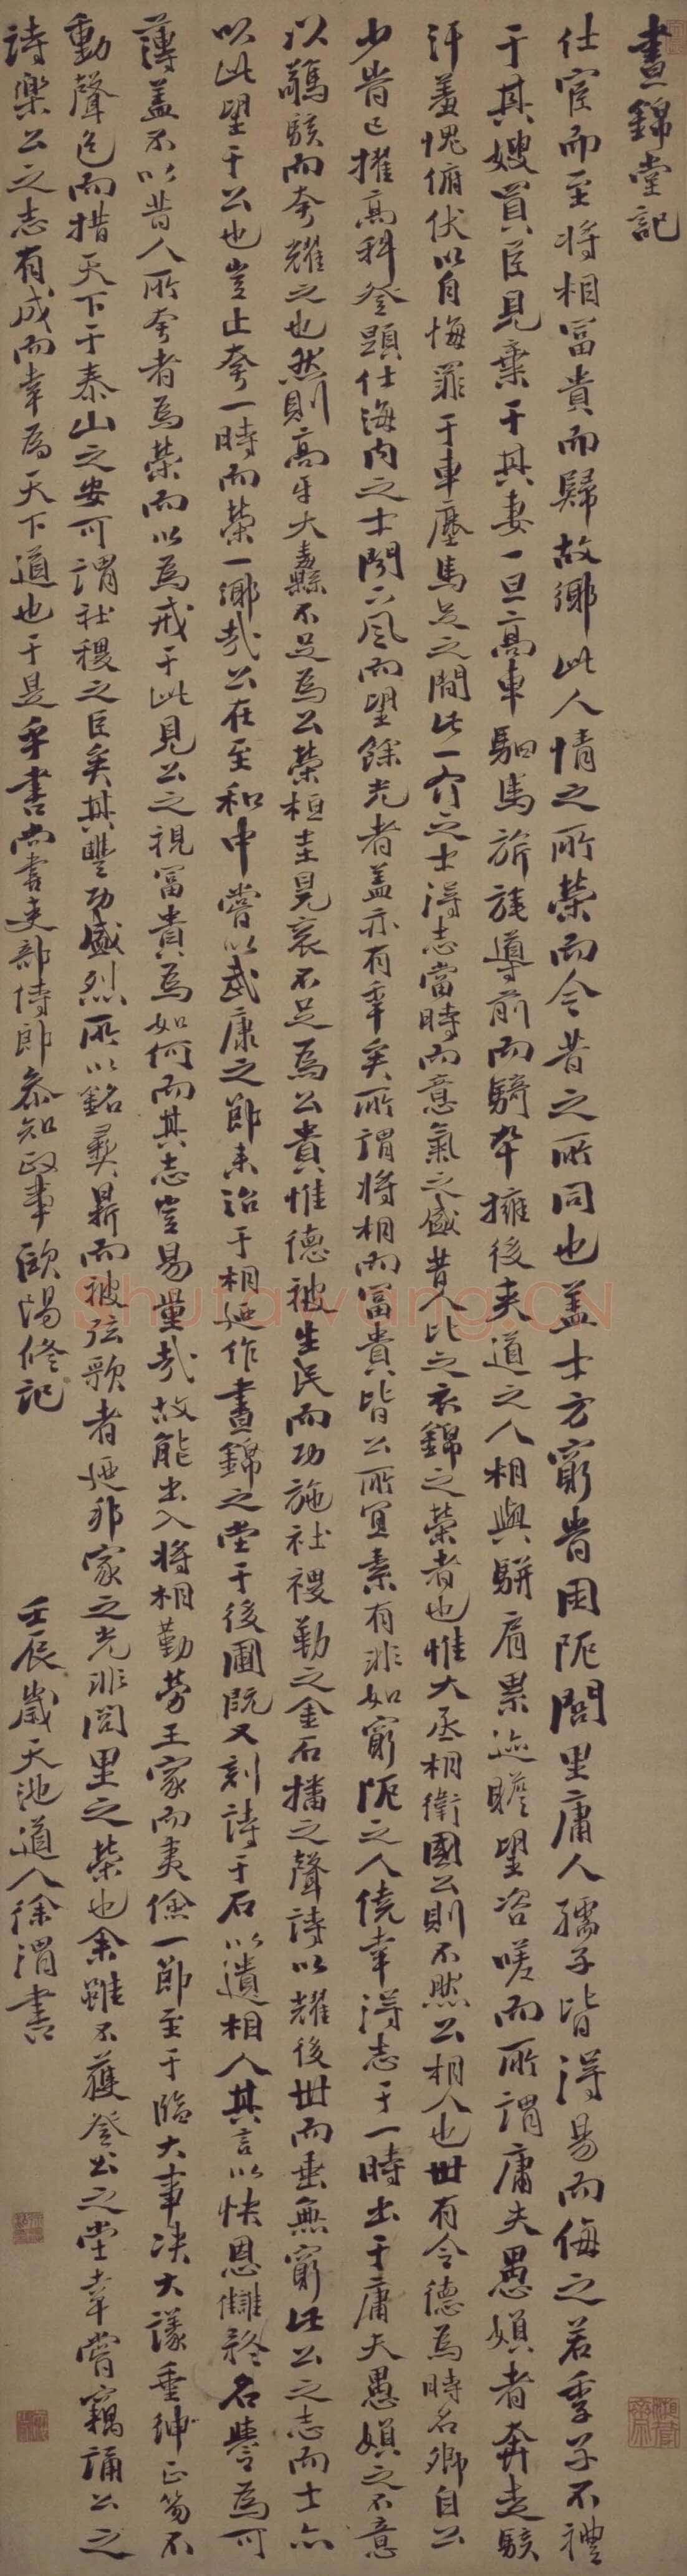 晝錦堂記
仕宦而至將相富貴而歸故鄉此人情之所榮而今昔之所同也蓋士方窮時困阨閭里庸人孺子皆得易而侮之若季子不禮
于其嫂買臣見棄于其妻一旦高車駟馬旂旄導前而騎卒擁後夾道之人相與駢肩累迹瞻望咨嗟而所謂庸夫愚婦者奔走駭
汗羞愧俯伏以自悔罪于車塵馬足之間此一介之士得志當時而意氣之盛昔人比之衣錦之榮者也惟大丞相衛國公則不然公相人也世有令德為時名卿自公
少時已擢高科登顯仕海內之士聞下風而望餘光者蓋亦有年矣所謂將相而富貴皆公所宜素有非如窮阨之人僥幸得志于一時出于庸夫愚婦之不意
以驚駭而夸耀之也然則高牙大纛不足為公榮桓圭冕袞不足為公貴惟德被生民而功施社稷勒之金石播之聲詩以耀後世而垂無窮此公之志而士亦
以此望于公也豈止夸一時而榮一鄉哉公在至和中嘗以武康之節來治于相迺作晝錦之堂于後圃既又刻詩于石以遺相人其言以快恩讎矜名譽為可
薄蓋不以昔人所夸者為榮而以為戒于此見公之視富貴為如何而其志豈易量哉故能出入將相勤勞王家而夷儉一節至于臨大事決大議垂紳正笏不
動聲色而措天下于泰山之安可謂社稷之臣矣其豐功盛烈所以銘彝鼎而被弦歌者迺邦家之光非閭里之榮也余雖不獲登公之堂幸嘗竊誦公之
詩樂公之志有成而幸為天下道也于是乎書尚書吏部侍郎參知政事歐陽修記
壬辰歲天池道人徐渭書
Shufawang.CN